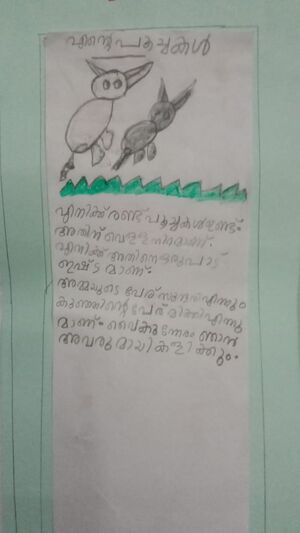 എന്റെ പൂച്ചകൾ
എനിക്ക് രണ്ട് പൂച്ചകൾ ഉണ്ട്.
അതിന് വെള്ള നിറമാണ്.
എനിക്ക് അതിനെ ഒരുപാട്
ഇഷ്ടമാണ്.
അമ്മയുടെ പേര് സുന്ദരി എന്നും
കുഞ്ഞിന്റെ പേര് മിക്കി എന്നു
മാണ്. വൈകുന്നേരം ഞാൻ
അവരുമായി കളിക്കും.